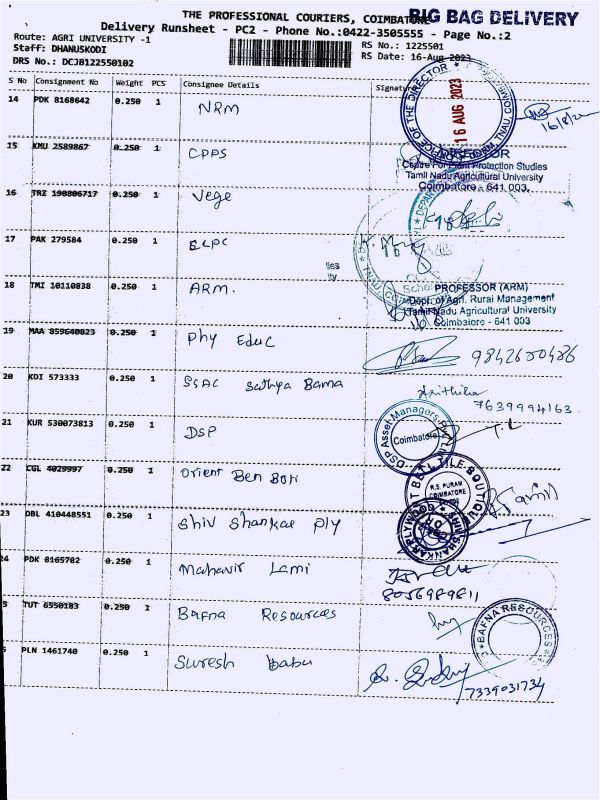 THE PROFESSIONAL COURIERS, COIMBATORE BIG BAG DELIVERY
Delivery Runsheet - PC2 - Phone No.:0422-3505555 - Page No.:2
Route: AGRI UNIVERSITY -1 RS No.: 1225501
Staff: DHANUSKODI RS Date: 16-Aug-2023
DRS No.: DCJB122550102
S No Consignment No Weight PCS Consignee Details Signature
14 PDK 8168642 0.250 1 NRM
OFFICE OF THE DIRECTOR
16 AUG 2023
16/8/2
15 KMU 2589867 0.250 1 CPPS
DIRECTOR
Centre For Plant Protection Studies
Tamil Nadu Agricultural University
Coimbatore - 641 003.
16 TRZ 190806717 0.250 1 Vege
17 PAK 279584 0.250 1 ELPC
18 TMI 10110838 0.250 1 ARM.
PROFESSOR (ARM)
Dept. of Agri. Rural Management
Tamil Nadu Agricultural University
Coimbatore - 641 003
19 MAA 859640823 0.250 1 Phy Educ 9842600486
20 KDI 573333 0.250 1 SSAC Sathya Bama
7639994163
21 KUR 530073813 0.250 1 DSP
DSP Asset Managers
Coimbatore
22 CGL 4029997 0.250 1 Orient Ben Bon
BELL TILE BOUTIQUE
R.S. PURAM
COIMBATORE
23 DBL 410448551 0.250 1 Shiv Shankar Ply
SHIV SHANKAR PLYWOOD
24 PDK 8165782 0.250 1 Mahavir Lami
8056989811
5 TUT 6550183 0.250 1 Bafna Resources
BAFNA RESOURCES
PLN 1461740 0.250 1 Suresh babu
7339031734